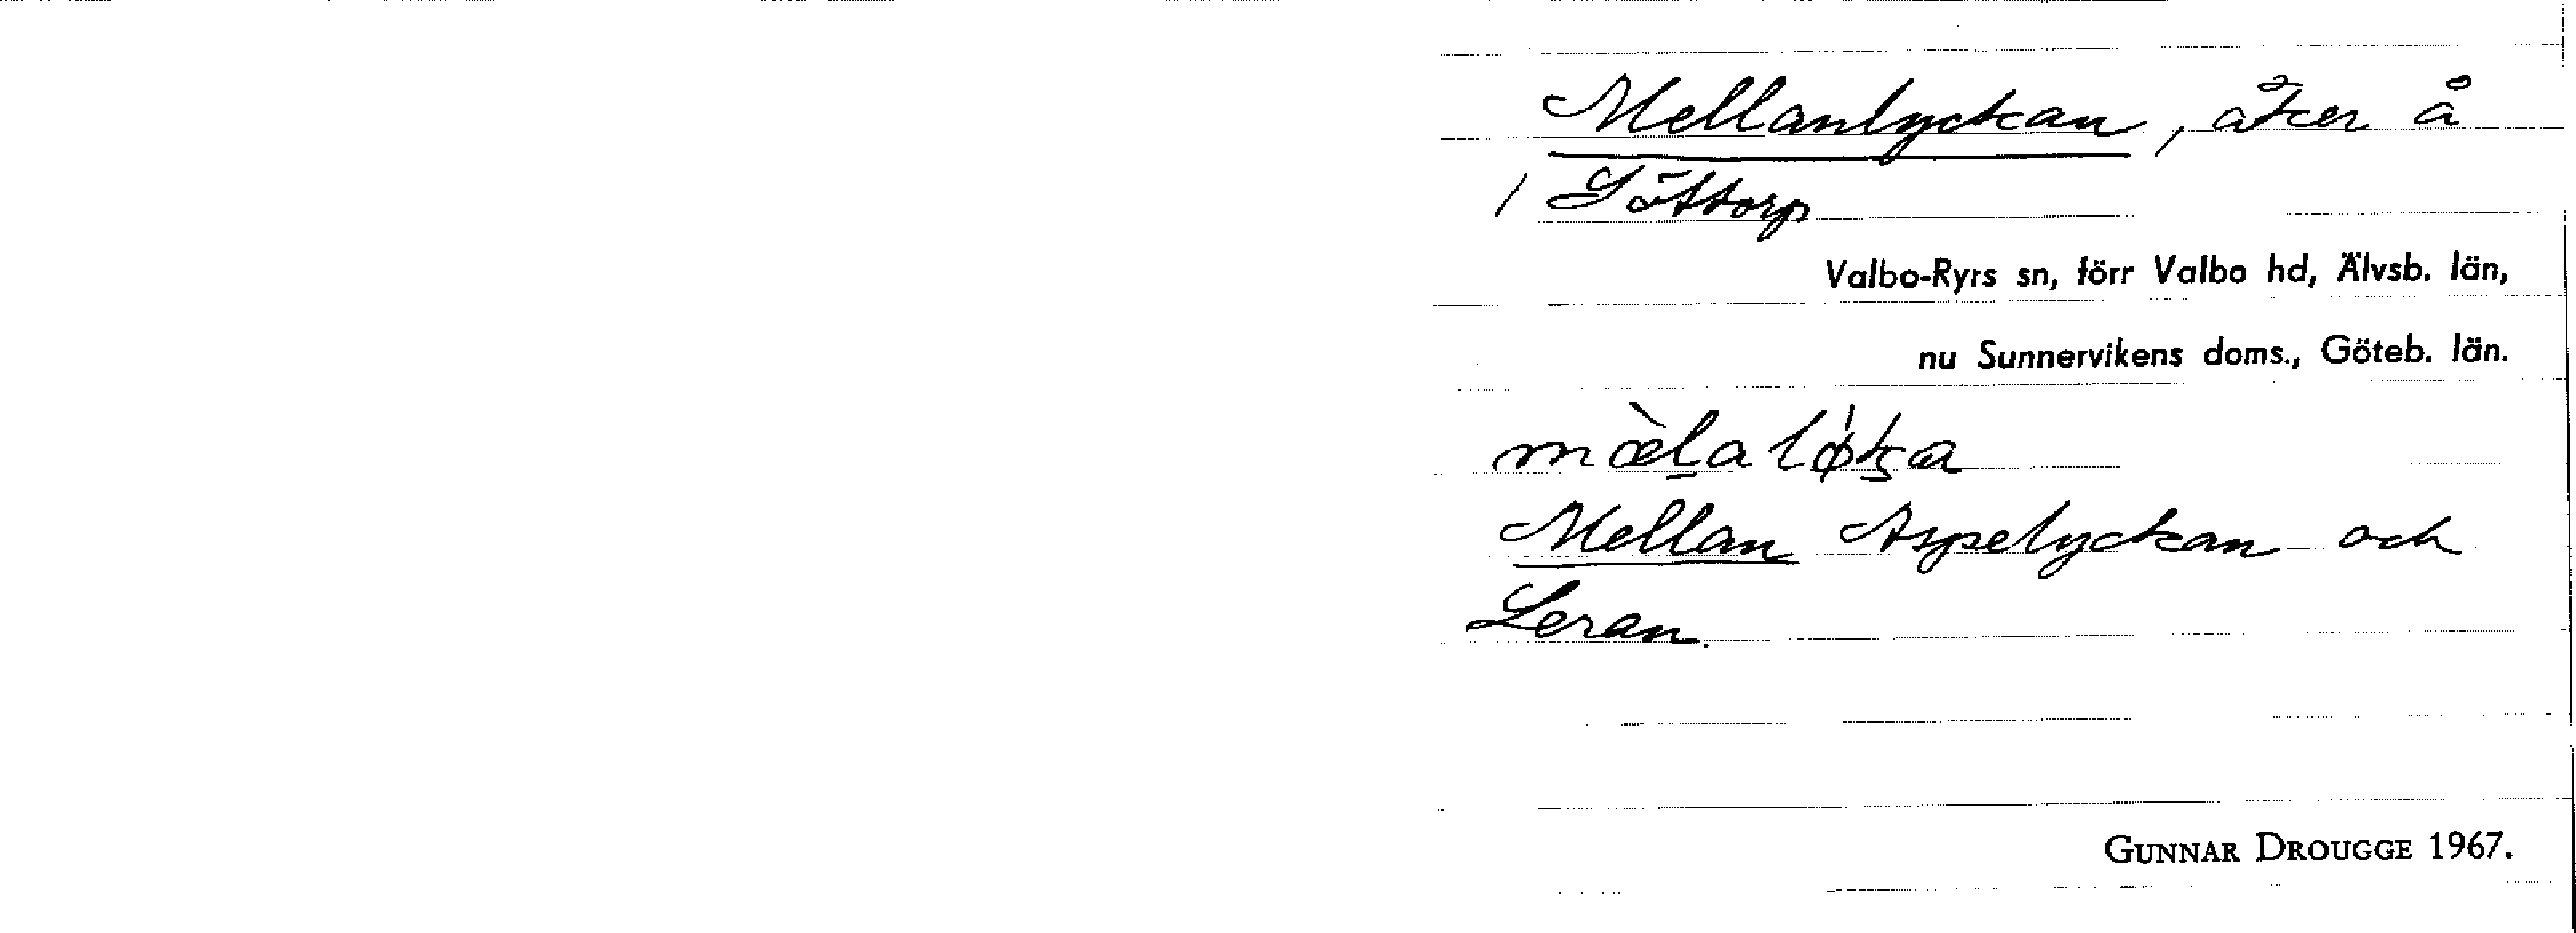 Mellanlyckan, åker å
/ Söttorp
Valbo-Ryrs sn, förr Valbo hd, Älvsb. län,
nu Sunnervikens doms., Göteb. län.
Mellan Aspelyckan och
Leran.
GUNNAR DROUGGE 1967.